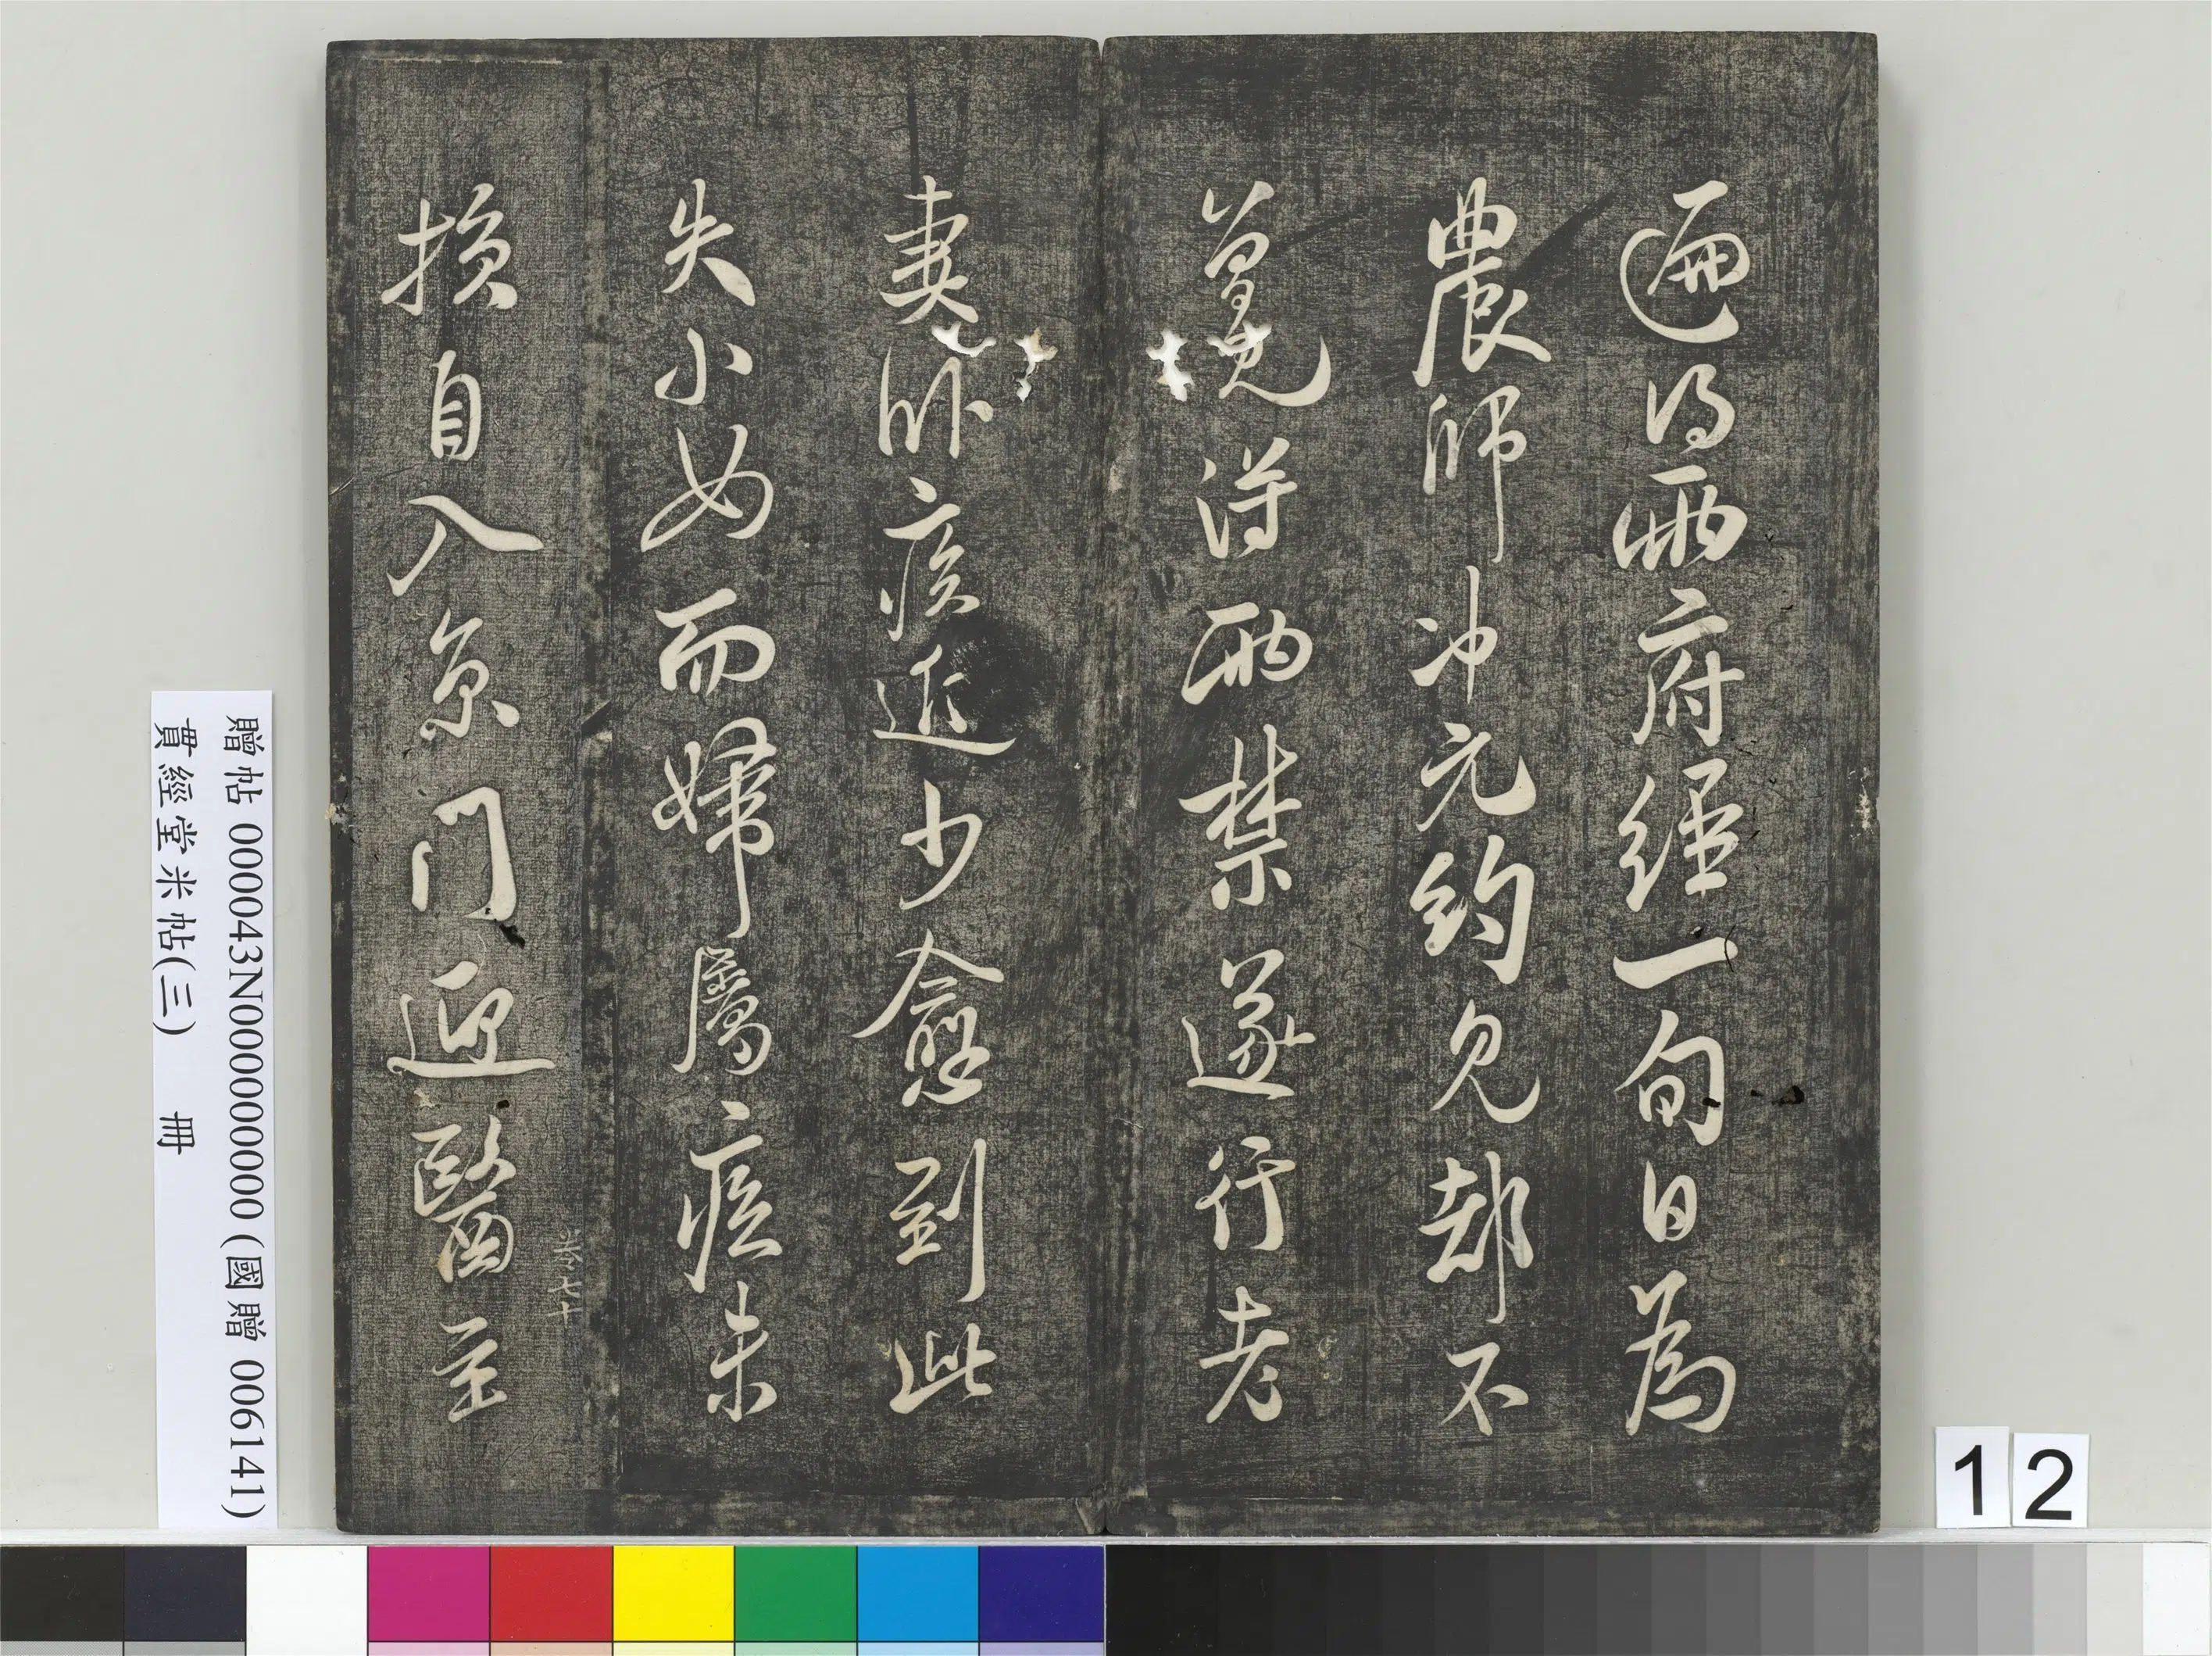 遍得兩府經一旬日為
農師冲元約見却不
曾見得兩禁遂行老
妻卧疾近少愈到此
失小女而婦屬疾未
損自入京门迎醫至
贈帖 000043N000000000 (國贈 006141)
貫經堂米帖(三) 冊
12